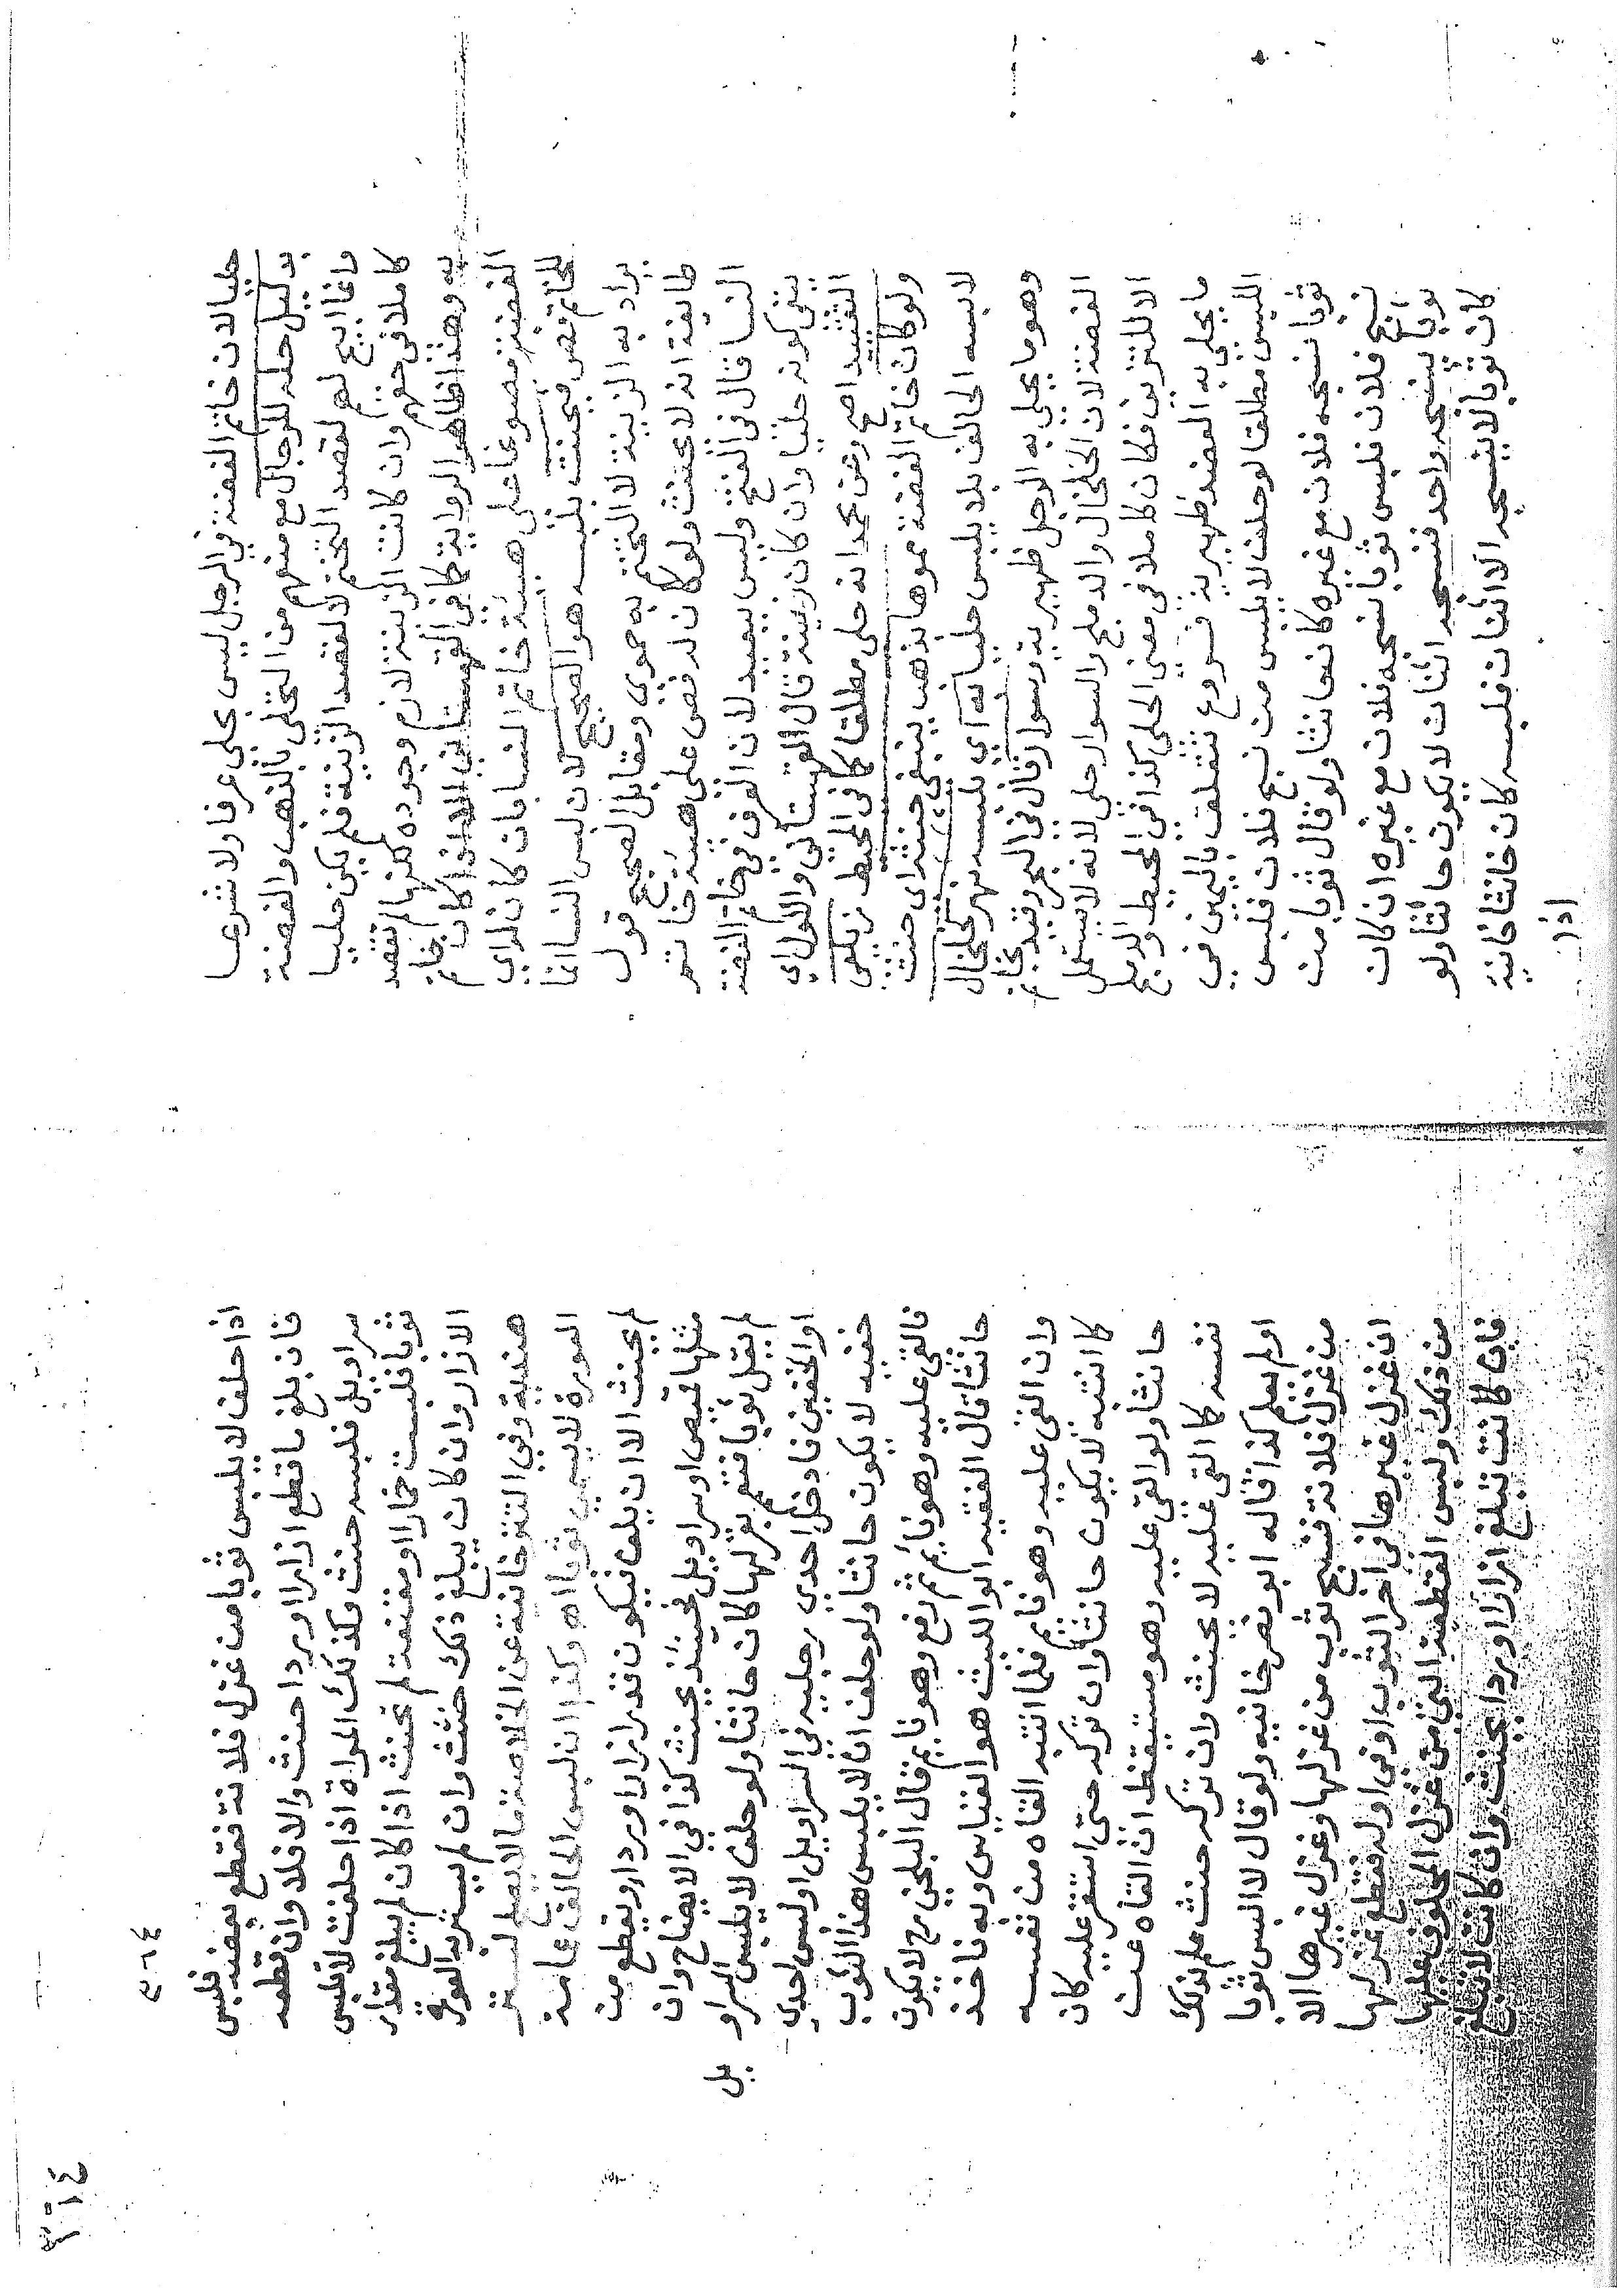 حليا لان خاتم الفضة في الرجل ليس بحلي عرفا ولا شرعا
بدليل حله للرجال مع منعهم من التحلي بالذهب والفضة
وانما ابيح لهم لقصد التختم لا لقصد الزينة فلم يكن حليا
كاملا في حقهم وان كانت الزينة لازم وجوده لكنها لم تقصد
به وهذا ظاهر الرواية كما في القهستاني الا اذا كان خاتم
الفضة مصوغا على هيئة خاتم النسا بان كان لواي
للخاتم فص فيحنث بلبسه هو الصحيح لان لبس النسا انما
يراد به الزينة لا التختم به حموي ومقابل الصحيح قول
طايفة انه لا يحنث ولو كان له فص على هيئة خاتم
النسا قال في الفتح وليس ببعيد لان العرف في خاتم الفضة
ينفي كونه حليا وان كان زينة قال القهستاني والاول اي
التقييد اصح وعن محمد انه حلى مطلقا كما في المحيط زيلعي
ولو كان خاتم الفضة مموها بذهب ينبغي حنثه اي حنث
لابسه الحالف بلا يلبس حليا به اي بلبسه نهر كخلخال
وهو ما يحلي به الرجل ظهيرية وسوار قال في البحر وقيد بخاتم
الفضة لان الخلخال والدملج والسوار حلي لانه لا يستعمل
الا للتزين فكان كاملا في معنى الحلي كذا في المحيط والدملج
ما يحلي به العضد ظهيرية فروع تتعلق باليمين في
اللبس مطلقا لو حلف لا يلبس من نسج فلان فلبس
ثوبا نسجه فلان مع غيره كان حانثا ولو قال ثوبا من
نسج فلان فلبس ثوبا نسجه فلان مع غيره ان كان
ثوبا ينسجه واحد فنسجه اثنان لا يكون حانثا ولو
كان ثوبا لا ينسجه الا اثنان فلبسه كان حانثا خانية
اذا
٤٦٤
اذا حلف لا يلبس ثوبا من غزل فلانة فقطع بعضه فلبس
فان بلغ ما قطع ازارا او ردا حنث والا فلا وان قطعه
سراويل فلبسه حنث وكذلك المراة اذا حلفت لا تلبس
ثوبا فلبست خمارا او مقنعة لم تحنث اذا كان لم يبلغ مقدار
الازار وان كان يبلغ ذلك حنث وان لم يستر به العورة
هندية وفي التتارخانية عن الخلاصة ما لا يصلح لستر
العورة لا يسمي ثوبا اه وكذا ان لبس الحالف عمامة
لم يحنث الا ان يلف فيكون قدر ازار او ردا او يقطع من
مثلها قميص او سراويل فحينئذ يحنث كذا في الايضاح وان
لم يقل ثوبا فتعمم بغزلها كان حانثا ولو حلف لا يلبس السراويل
او الخفين فادخل احدي رجليه في السراويل او لبس احدي
خفيه لا يكون حانثا ولو حلف ان لا يلبس هذا الثوب
فالقي عليه وهو نايم ثم رفع وهو نايم قال البلخي رح لا يكون
حانثا قال الفقيه ابو الليث هو القياس وبه ناخذ
وان القي عليه وهو نايم فلما انتبه القاه من نفسه
كما انتبه لا يكون حانثا وان تركه حتى استقر عليه كان
حانثا ولو القي عليه وهو مستيقظ ان القاه عن
نفسه كما القي عليه لا يحنث وان تركه حنث علم بذلك
او لم يعلم كذا قاله ابو نصر خانيه ولو قال لا البس ثوبا
من غزل فلانة فنسج ثوب من غزلها وغزل غيرها الا
ان غزل غيرها في اخر الثوب او في اوله فقطع غزلها
من ذلك ولبس القطعة التي من غزل المحلوف عليها
فان كانت تبلغ ازارا او ردا يحنث وان كانت لا تبلغ
٢٦٤